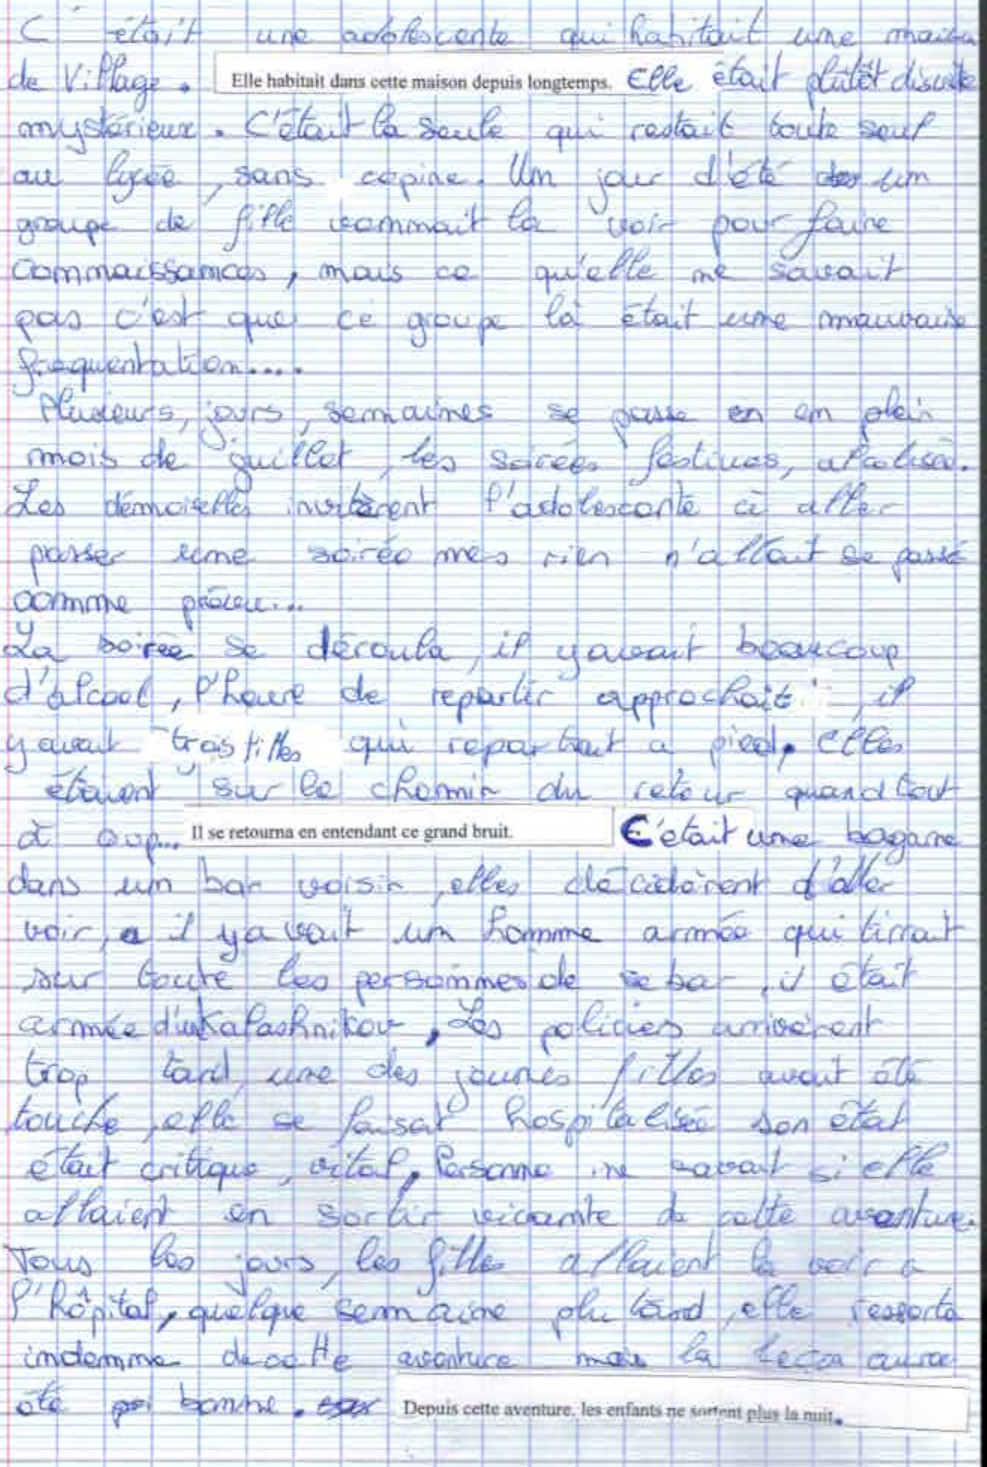 C'était une adolescente qui habitait une maison
de Village. Elle habitait dans cette maison depuis longtemps. Elle était plutôt discrète
mystérieuse. C'était la seule qui restait toute seul
au lycée, sans copine. Un jour d'été un
groupe de fille vennait la voir pour faire
connaissances, mais ce qu'elle ne savait
pas c'est que ce groupe là était une mauvaise
frequentation....
Plusieurs, jours, semaines se passe en en plein
mois de juillet, les soirées festives, alcolisée.
Les démoiselles invitèrent l'adolescente à aller
passer une soirée mes rien n'allait se passé
comme prévu...
La soirée se déroula, il yavait beaucoup
d'alcool, l'heure de repartir approchait, il
y avait trois filles qui repartait a pied. Elles
étaient sur le chemin du retour quand tout
à coup... Il se retourna en entendant ce grand bruit. C'était une bagarre
dans un bar voisin, elles décidèrent d'aller
voir, il yavait un homme armée qui tirrait
sur toute les personnes de se bar, il était
armée d'un Kalashnikov, Les policiers arrivèrent
trop tard, une des jeunes filles avait été
touché, elle se faisat hospitalisée son état
était critique, vital, Personne ne savait si elle
allaient en sortir vivante de cette aventure.
Tous les jours, les fille allaient la voir a
l'hôpital, quelque semaine plu tard, elle ressorta
indemne de cette aventure mais la leçon aura
été bonne. Depuis cette aventure, les enfants ne sortent plus la nuit.